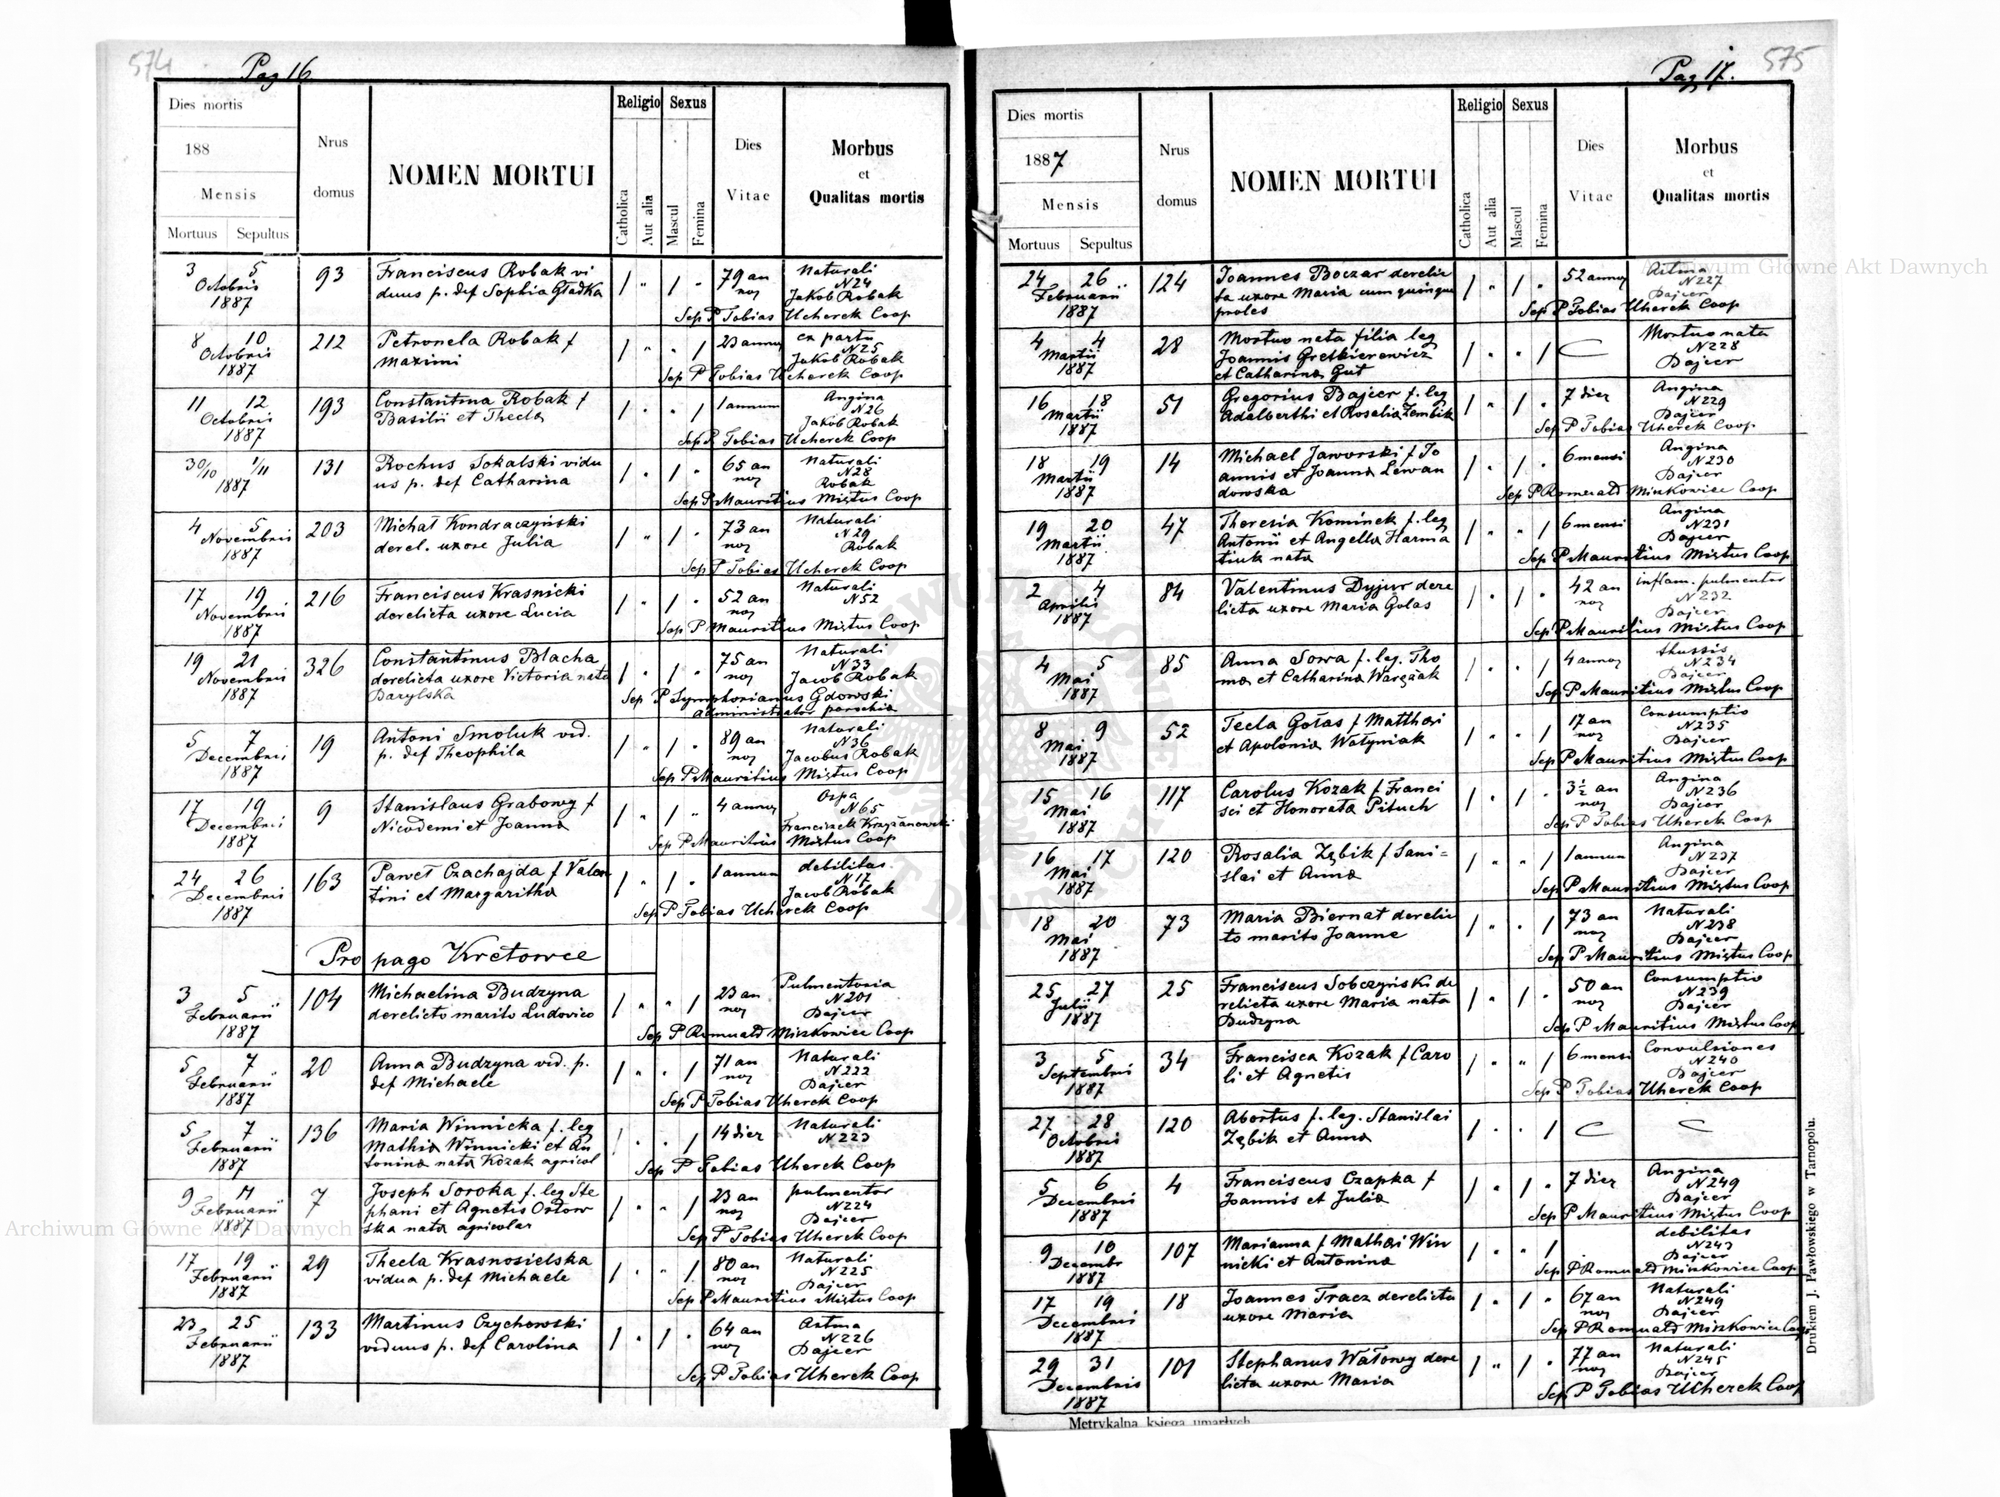 574
Pag 16
Dies mortis
188
Mensis
Mortuus Sepultus
Nrus domus
NOMEN MORTUI
Religio
Catholica
Aut alia
Sexus
Mascul
Femina
Dies Vitae
Morbus
et
Qualitas mortis
3 5 Octobris 1887 93 Franciscus Robak vi
duus p. def Sophia Gładka 1 " 1 " 79 an
noz Naturali
N24
Jakob Robak
Sep P Tobias Ucherek Coop
8 10 Octobris 1887 212 Petronela Robak f
Maximi 1 " " 1 23 annoz ex partu
N25
Jakob Robak
Sep P Tobias Ucherek Coop
11 12 Octobris 1887 193 Constantina Robak f
Basilii et Thecla 1 " " 1 1 annum Angina
N26
Jakob Robak
Sep P Tobias Ucherek Coop
30/10 1/11 1887 131 Rochus Sokalski vidu
us p. def Catharina 1 " 1 " 65 an
noz Naturali
N28
Robak
Sep P Mauritius Mistus Coop
4 5 Novembris 1887 203 Michał Kondraczyński
derel. uxore Julia 1 " 1 " 73 an
noz Naturali
N29
Robak
Sep P Tobias Ucherek Coop
17 19 Novembris 1887 216 Franciscus Krasnicki
derelicta uxore Lucia 1 " 1 " 52 an
noz Naturali
N52
Sep P Mauritius Mistus Coop
19 21 Novembris 1887 326 Constantinus Blacha
derelicta uxore Victoria nata
Barylska 1 " 1 " 75 an
noz Naturali
N33
Jacob Robak
Sep P Symphorianus Gdowski
administrator parochia
5 7 Decembris 1887 19 Antoni Smoluk vid.
p. def Theophila 1 " 1 " 89 an
noz Naturali
N36
Jacobus Robak
Sep P Mauritius Mistus Coop
17 19 Decembris 1887 9 Stanislaus Grabowy f
Nicodemi et Joanna 1 " 1 " 4 annoz Ospa
N65
Franciszek Krzyżanowski
Sep P Mauritius Mistus Coop
24 26 Decembris 1887 163 Paweł Czachajda f Valen
tini et Margaritha 1 " 1 " 1 annum debilitas
N17
Jacob Robak
Sep P Tobias Ucherek Coop
Pro pago Kretowce
3 5 Februarii 1887 104 Michaelina Budzyna
derelicto marito Ludovico 1 " " 1 23 an
noz Pulmentoria
N201
Bajcer
Sep P Romuald Miszkowicz Coop
5 7 Februarii 1887 20 Anna Budzyna vid. p.
def Michaele 1 " " 1 71 an
noz Naturali
N222
Bajcer
Sep P Tobias Uherek Coop
5 7 Februarii 1887 136 Maria Winnicka f. leg
Mathia Winnicki et An
tonina nata Kozak agricol 1 " " 1 14 diez Naturali
N223
Sep P Tobias Uherek Coop
9 11 Februarii 1887 7 Joseph Soroka f. leg Ste
phani et Agnetis Ostow
ska nata agricolar 1 " " 1 23 an
noz pulmentor
N224
Bajcer
Sep P Tobias Uherek Coop
17 19 Februarii 1887 29 Thecla Krasnosielska
vidua p. def Michaele 1 " " 1 80 an
noz Naturali
N225
Bajcer
Sep P Mauritius Mistus Coop
23 25 Februarii 1887 133 Martinus Czychowski
viduus p. def Carolina 1 " 1 " 64 an
noz Astma
N226
Bajcer
Sep P Tobias Uherek Coop
575
Pag 17.
Dies mortis
1887
Mensis
Mortuus Sepultus
Nrus domus
NOMEN MORTUI
Religio
Catholica
Aut alia
Sexus
Mascul
Femina
Dies Vitae
Morbus
et
Qualitas mortis
24 26 Februarii 1887 124 Joannes Boczar derelic
ta uxore Maria cum quinque
proles 1 " 1 " 52 annoz Astma
N227
Bajcer
Sep P Tobias Uherek Coop
4 4 Martii 1887 28 Mortuo nata filia leg
Joannis Gretkierewicz
et Catharina Gut 1 " " 1 Mortuo nata
N228
Bajcer
16 18 Martii 1887 51 Gregorius Bajcer f. leg
Adalberthi et Rosalia Zembik 1 " 1 " 7 dier Angina
N229
Bajcer
Sep P Tobias Uherek Coop
18 19 Martii 1887 14 Michael Jaworski f Jo
annis et Joanna Lewan
dowska 1 " 1 " 6 mensi Angina
N230
Bajcer
Sep P Romuald Miszkowicz Coop
19 20 Martii 1887 47 Theresia Kominek f. leg
Antonii et Angella Harma
tiuk nata 1 " " 1 6 mensi Angina
N231
Bajcer
Sep P Mauritius Mistus Coop
2 4 Aprilis 1887 84 Valentinus Dyjur dere
licta uxore Maria Golas 1 " 1 " 42 an
noz inflam. pulmentor
N232
Bajcer
Sep P Mauritius Mistus Coop
4 5 Mai 1887 85 Anna Sowa f. leg. Tho
ma et Catharina Warząak 1 " " 1 4 annoz thussis
N234
Bajcer
Sep P Mauritius Mistus Coop
8 9 Mai 1887 52 Tecla Gołas f Matthai
et Apolonia Watyniak 1 " " 1 17 an
noz Consumptio
N235
Bajcer
Sep P Mauritius Mistus Coop
15 16 Mai 1887 117 Carolus Kozak f Franci
sci et Honorata Pituch 1 " 1 " 3½ an
noz Angina
N236
Bajcer
Sep P Tobias Uherek Coop
16 17 Mai 1887 120 Rosalia Zębik f Sani=
slai et Anna 1 " " 1 1 annum Angina
N237
Bajcer
Sep P Mauritius Mistus Coop
18 20 Mai 1887 73 Maria Biernat derelic
to marito Joanne 1 " " 1 73 an
noz Naturali
N238
Bajcer
Sep P Mauritius Mistus Coop
25 27 Julii 1887 25 Franciscus Sobczyński de
relicta uxore Maria nata
Budzyna 1 " 1 " 50 an
noz Consumptio
N239
Bajcer
Sep P Mauritius Mistus Coop
3 5 Septembris 1887 34 Francisca Kozak f Caro
li et Agnetis 1 " " 1 6 mensi Convulsiones
N240
Bajcer
Sep P Tobias Uherek Coop
27 28 Octobris 1887 120 Abortus f. leg. Stanislai
Zębik et Anna 1 " " 1
5 6 Decembris 1887 4 Franciscus Czapka f
Joannis et Julia 1 " 1 " 7 dier Angina
N249
Bajcer
Sep P Mauritius Mistus Coop
9 10 Decembr 1887 107 Marianna f Mathai Win
nicki et Antonina 1 " " 1 debilitas
N243
Bajcer
Sep P Romuald Miszkowicz Coop
17 19 Decembris 1887 18 Joannes Tracz derelicta
uxore Maria 1 " 1 " 67 an
noz Naturali
N249
Bajcer
Sep P Romuald Miszkowicz Coop
29 31 Decembris 1887 101 Stephanus Wałowy dere
licta uxore Maria 1 " 1 " 77 an
noz Naturali
N245
Bajcer
Sep P Tobias Uherek Coop
Metrykalna księga umarłych
Drukiem J. Pawłowskiego w Tarnopolu.
Archiwum Główne Akt Dawnych
Archiwum Główne Akt Dawnych